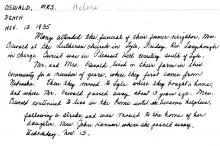 OSWALD, MRS. Helene
DEATH
NOV. 13 1935
Many attended the funeral of their former neighbor, Mrs.
Oswald at the Lutheran church in Lyle, Friday. Rev
in charge. Burial was in Pleasant Hill cemetery south of Lyle.
Mr. and Mrs. Oswald lived on their farm in this
community for a number of years, where they first came from
Nebraska. Then they moved to Lyle where they bought a home,
and where Mr. Oswald passed away, about 3 years ago. Mrs.
Oswald continued to live in the home until she became helpless,
following a stroke and was moved to the home of her
daughter, Mrs. John Hanson where she passed away,
Wednesday, Nov. 13.